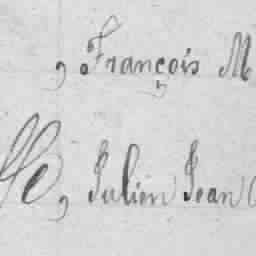 , François M
, Julien Jean